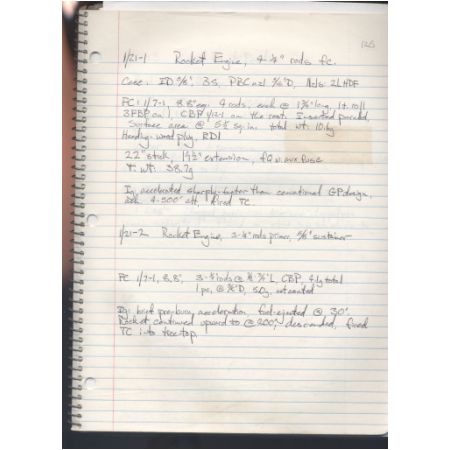 126
1/21-1 Rocket Engine, 4-¼" rods f.c.
Case: ID 5/8", 3S, PBC nzl "D,
FC: 1/7-1, 8.8" eq. 4 rods, each @ 1 " long, 1t. roll
3FBP on 1, CBP 1/12-1 on the rest. Inserted
Surface area @ 5½ sq. in. total wt. 10.6g
Heading- wood plug, RD1
22" stick, 14½" extension, f.q.v. aux fuse
T. wt. 38.7g
Ig. accelerated sharply-faster than conventional GP design,
4-500' alt, fired TC.
1/21-2 Rocket Engine, 3-¼" rods primer, 5/8" sustainer
FC 1/7-1, 8.8", 3-¼ rods @ "L, CBP, total
1 pc, @ "D, 5.0g, not coated
Ig: brief pre-burn, acceleration, fuel-ejected @ 30'
Rocket continued upward to @ 200', descended, fired
TC into treetop